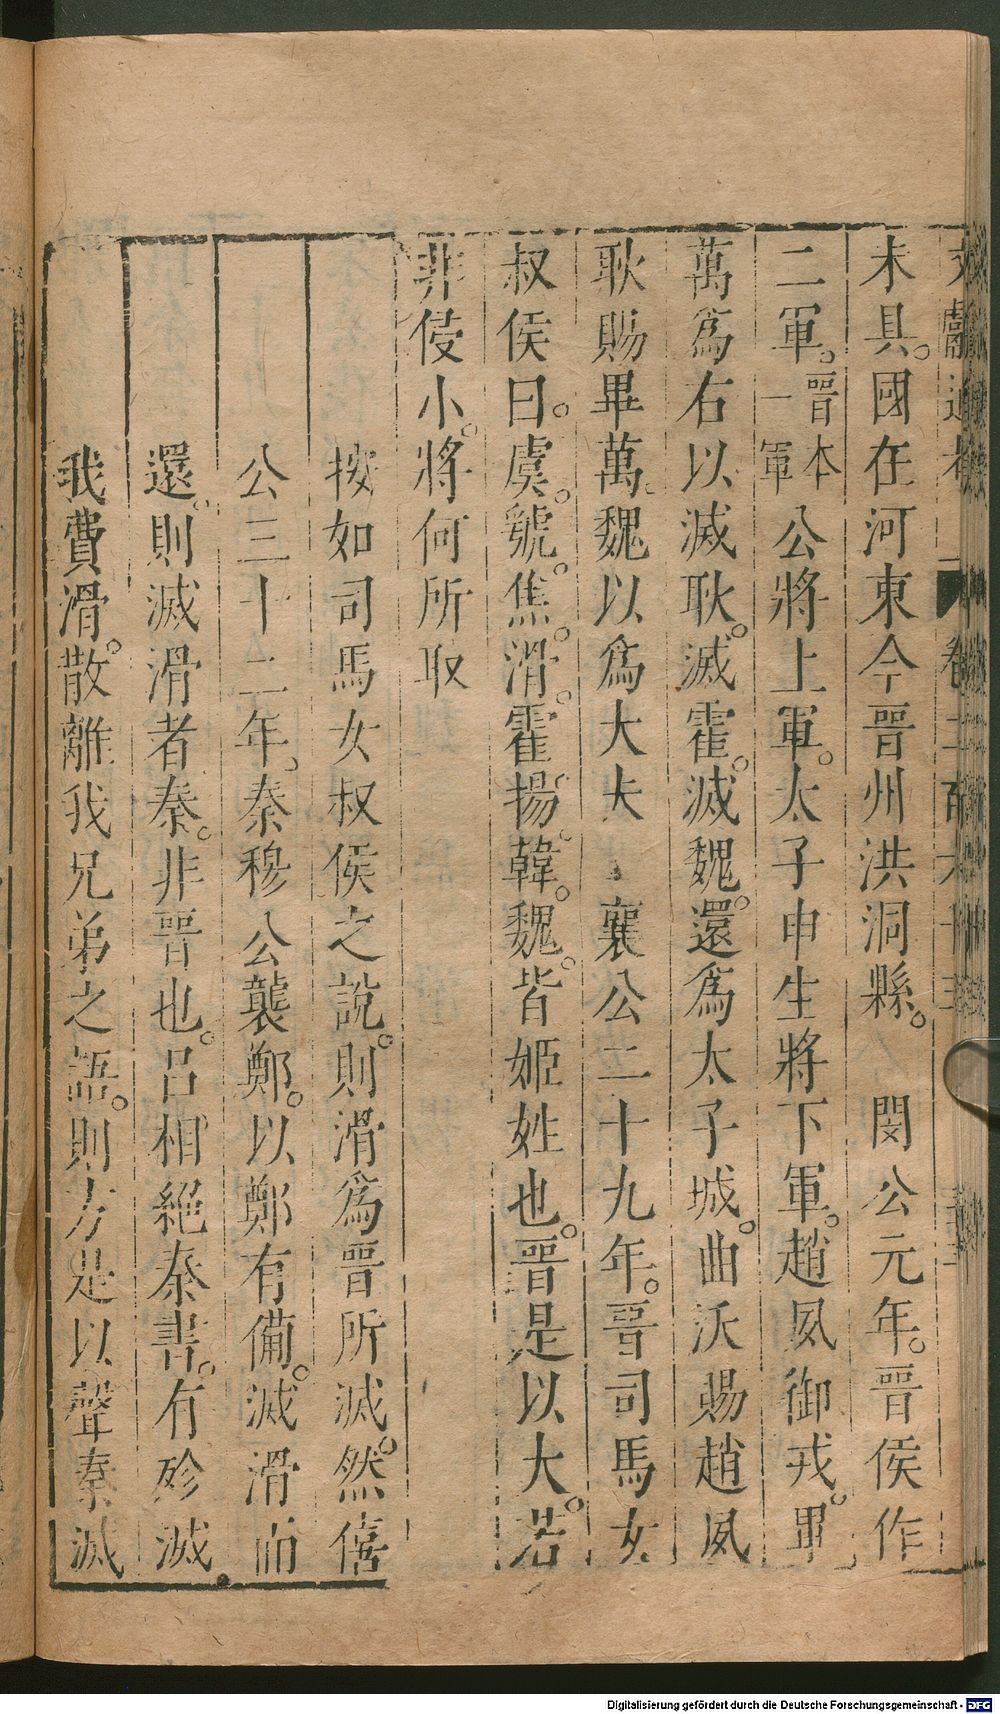 未具國在河東今晉州洪洞縣。　閔公元年。晉侯作
二軍。晉本一軍　公將上軍。太子申生將下軍。趙夙御戎。畢
萬爲右以滅耿。滅霍。滅魏。還爲太子城。曲沃賜趙夙
耿賜畢萬。魏以爲大夫　襄公二十九年。晉司馬女
叔侯曰。虞。虢。焦。滑。霍揚。韓。魏。皆姬姓也。晉是以大。若
非侵小。將何所取
按如司馬女叔侯之說。則滑爲晉所滅。然僖
公三十二年。秦穆公襲鄭。以鄭有備。滅滑而
還。則滅滑者秦。非晉也。呂相絕秦書。有殄滅
我費滑。散離我兄弟之語。則方是以聲秦滅
Digitalisierung gefördert durch die Deutsche Forschungsgemeinschaft - DFG